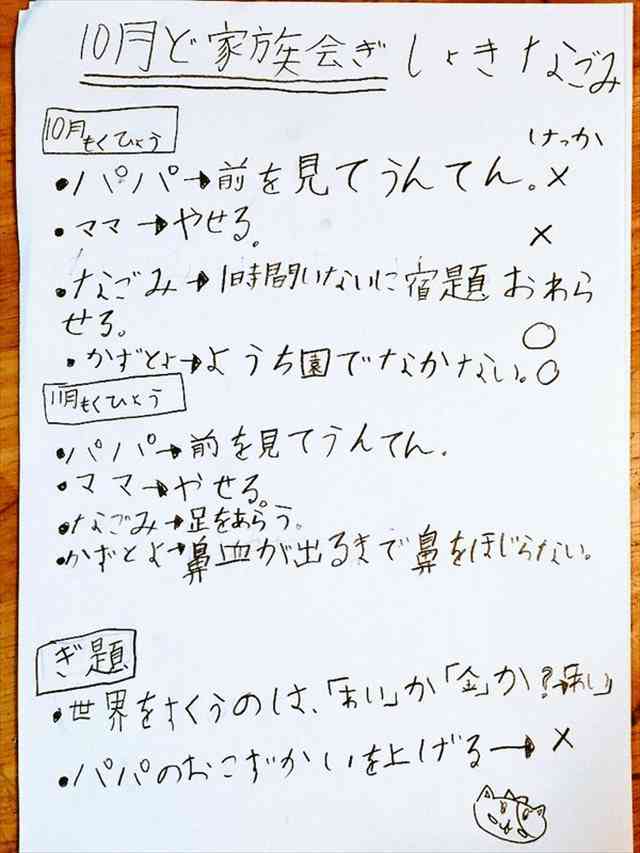 10月ど家族会ぎ しょき なごみ
10月もくひょう
けっか
・パパ→前を見てうんてん。×
・ママ→やせる。 ×
・なごみ→1時間いないに宿題おわら
せる。 ○
・かずとよ→ようち園でなかない。○
11月もくひょう
・パパ→前を見てうんてん。
・ママ→やせる。
・なごみ→足をあらう。
・かずとよ→鼻血が出るまで鼻をほじらない。
ぎ題
・世界をすくうのは、「あい」か「金」か?→あい
・パパのおこずかいを上げる→×